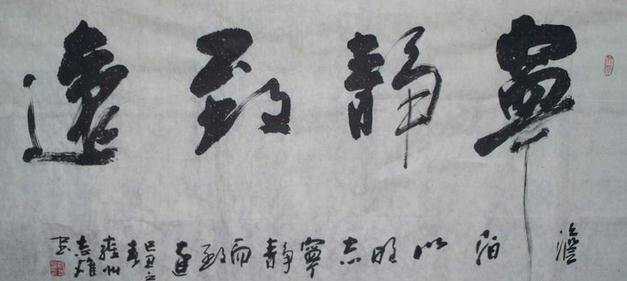 寧靜致遠
澹泊以明志寧靜而致遠
己丑之春
志雄書